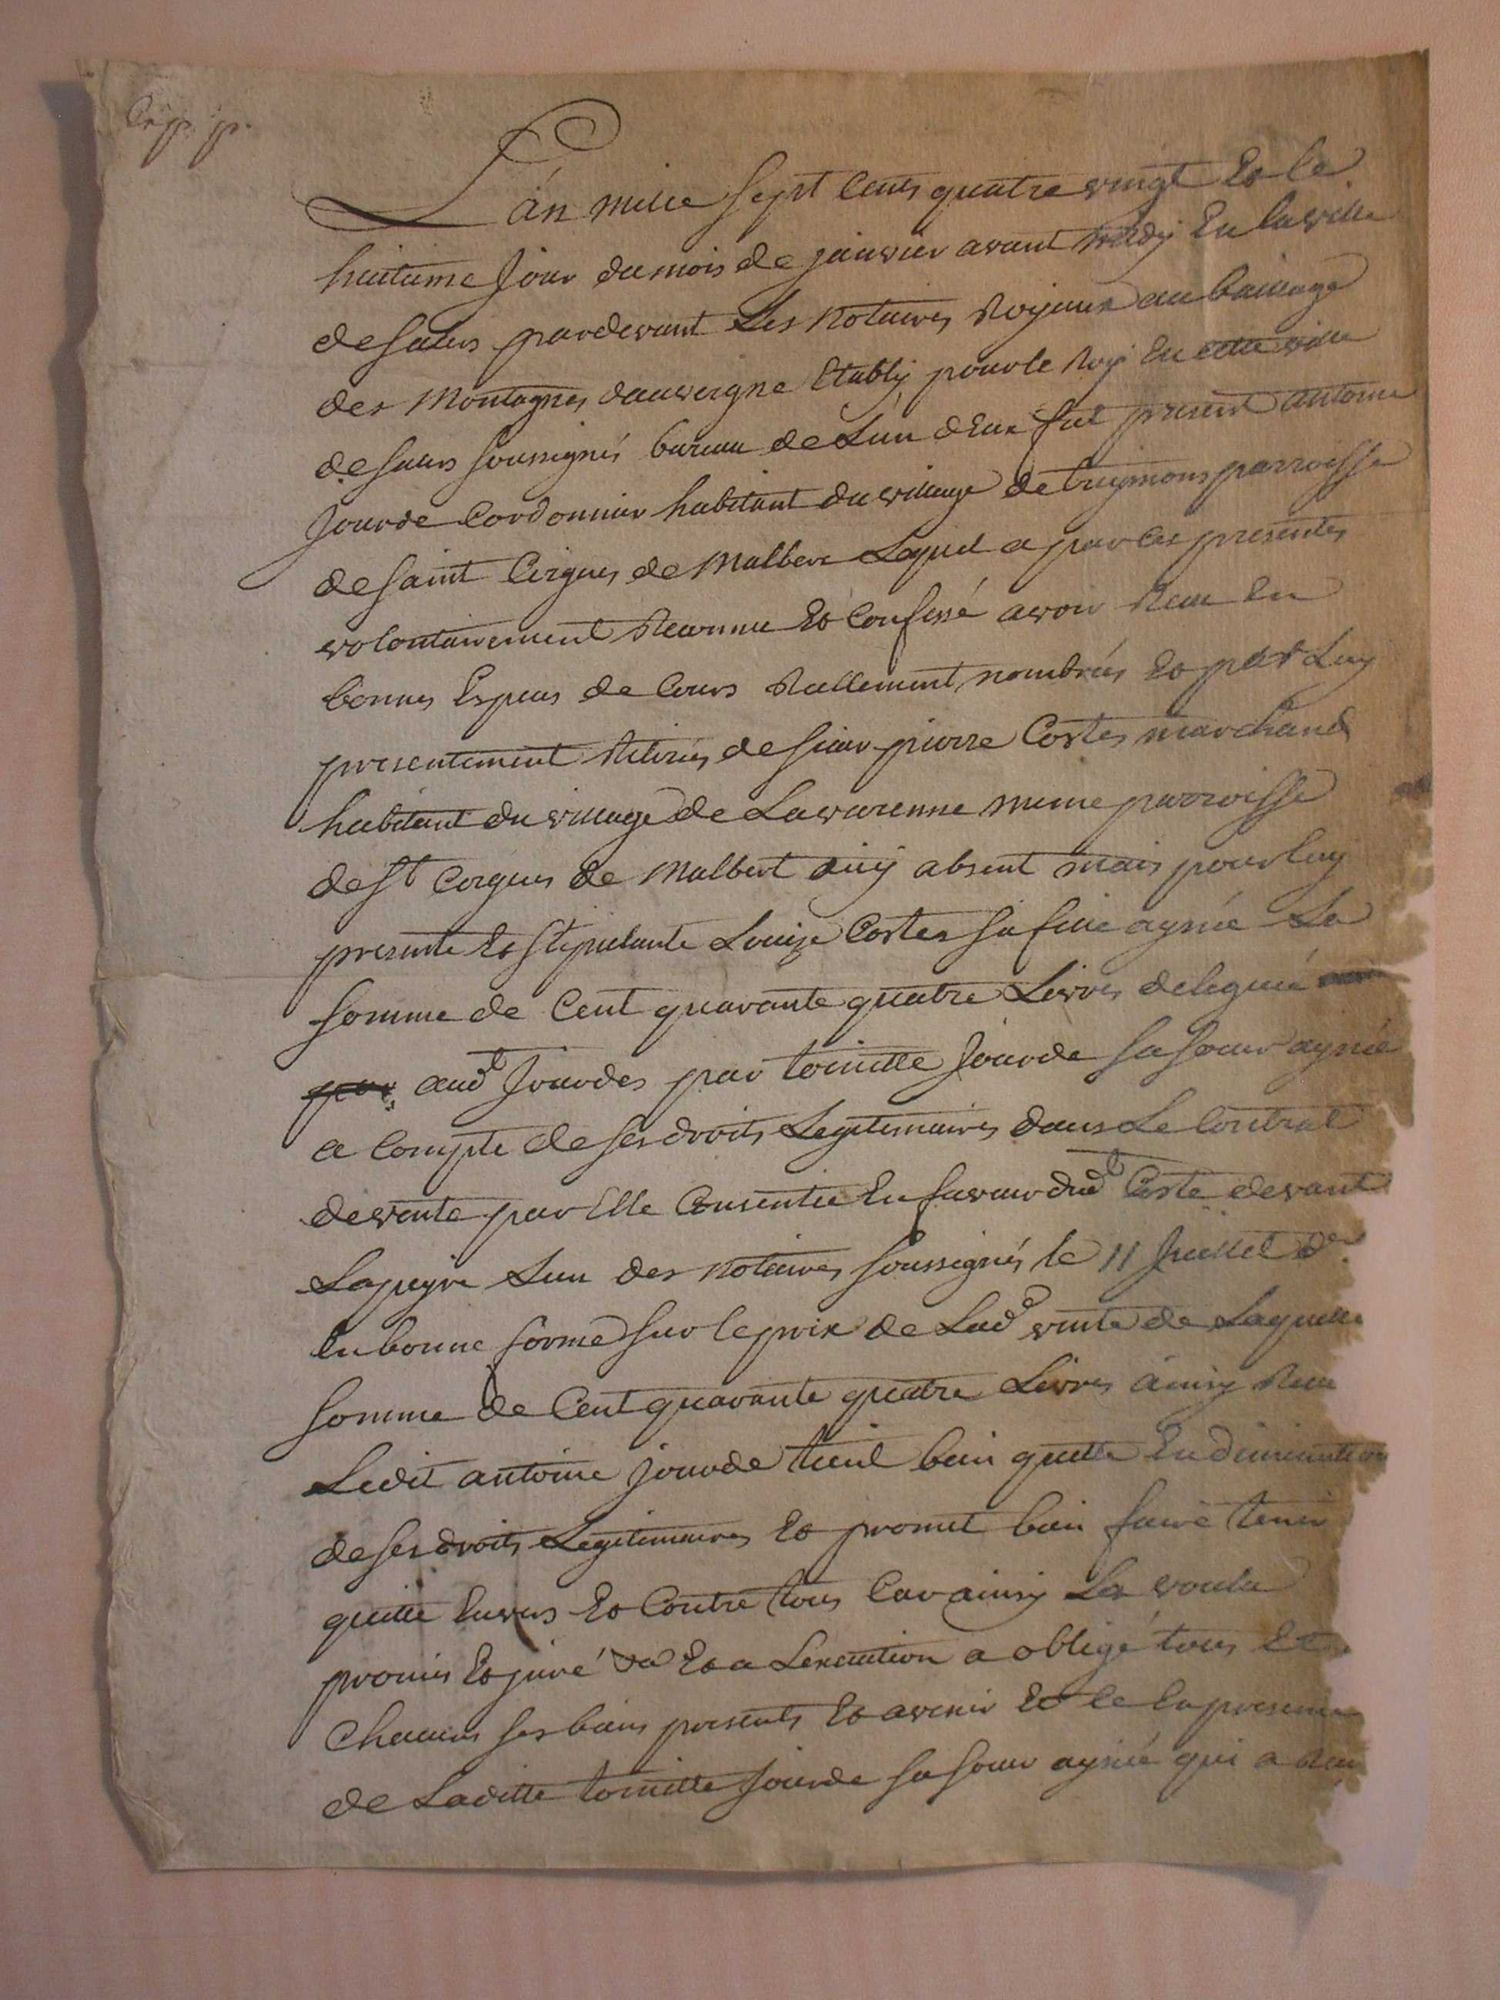 L'an mille sept cents quatre vingt et le
huitieme jour du mois de janvier avant midy en la ville
de salers pardevant les notaires Royaux au bailliage
des montagnes d'auvergne Etably pour le Roy en cette ville
de salers soussignés bureau de l'un d'eux fut present antoine
jourde Cordonnier habitant du village de paroisse
de saint Cirgues de Malbert Lequel a par ces presentes
volontairement Reconnu et Confessé avoir Receu en
bonnes Especes de Cours Reellement nombrées et par Luy
presentement Retirés de sieur pierre Costes marchand
habitant du village de Lavarenne meme parroisse
de st Cirgues de Malbert absent mais pour luy
presente et stipulante Louize Costes sa fille aynée La
somme de Cent quarante quatre Livres deleguée
aud Jourdes par toinette Jourde sa soeur aynée
a Compte de ses droits Legitimaires dans Le Contrat
de vente par Elle Consentie En faveur dud Coste devant
Lapeyre L'un des notaires soussignés le 11 Juillet d
En bonne forme sur le prix de Lad vente de Laquelle
somme de Cent quarante quatre Livres ainsy Receu
Ledit antoine jourde tient bien quitte En diminution
de ses droits Legitimaires et promet bien faire tenir
quitte Envers et Contre tous Car ainsy La voulu
promis et juré et a L'execution a obligé tous Et
Chacuns ses biens presents et avenir et ce En presence
de Laditte toinette Jourde sa soeur aynée qui a